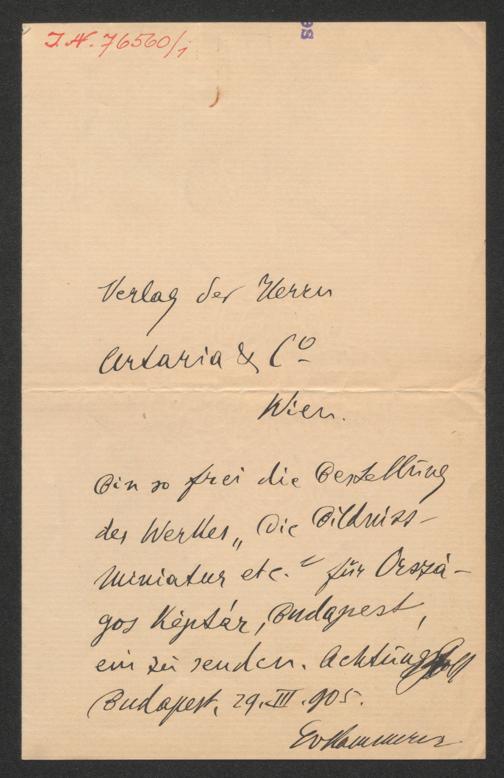 I.N. 76560/1
Verlag der Herrn
Artaria & Co
Wien.
Bin so frei die Bestellung
des Werkes „Die Bildniss-
miniatur etc." für Orszá-
gos Képtár, Budapest,
ein zu senden. Achtungsvoll
Budapest, 29.III.905.